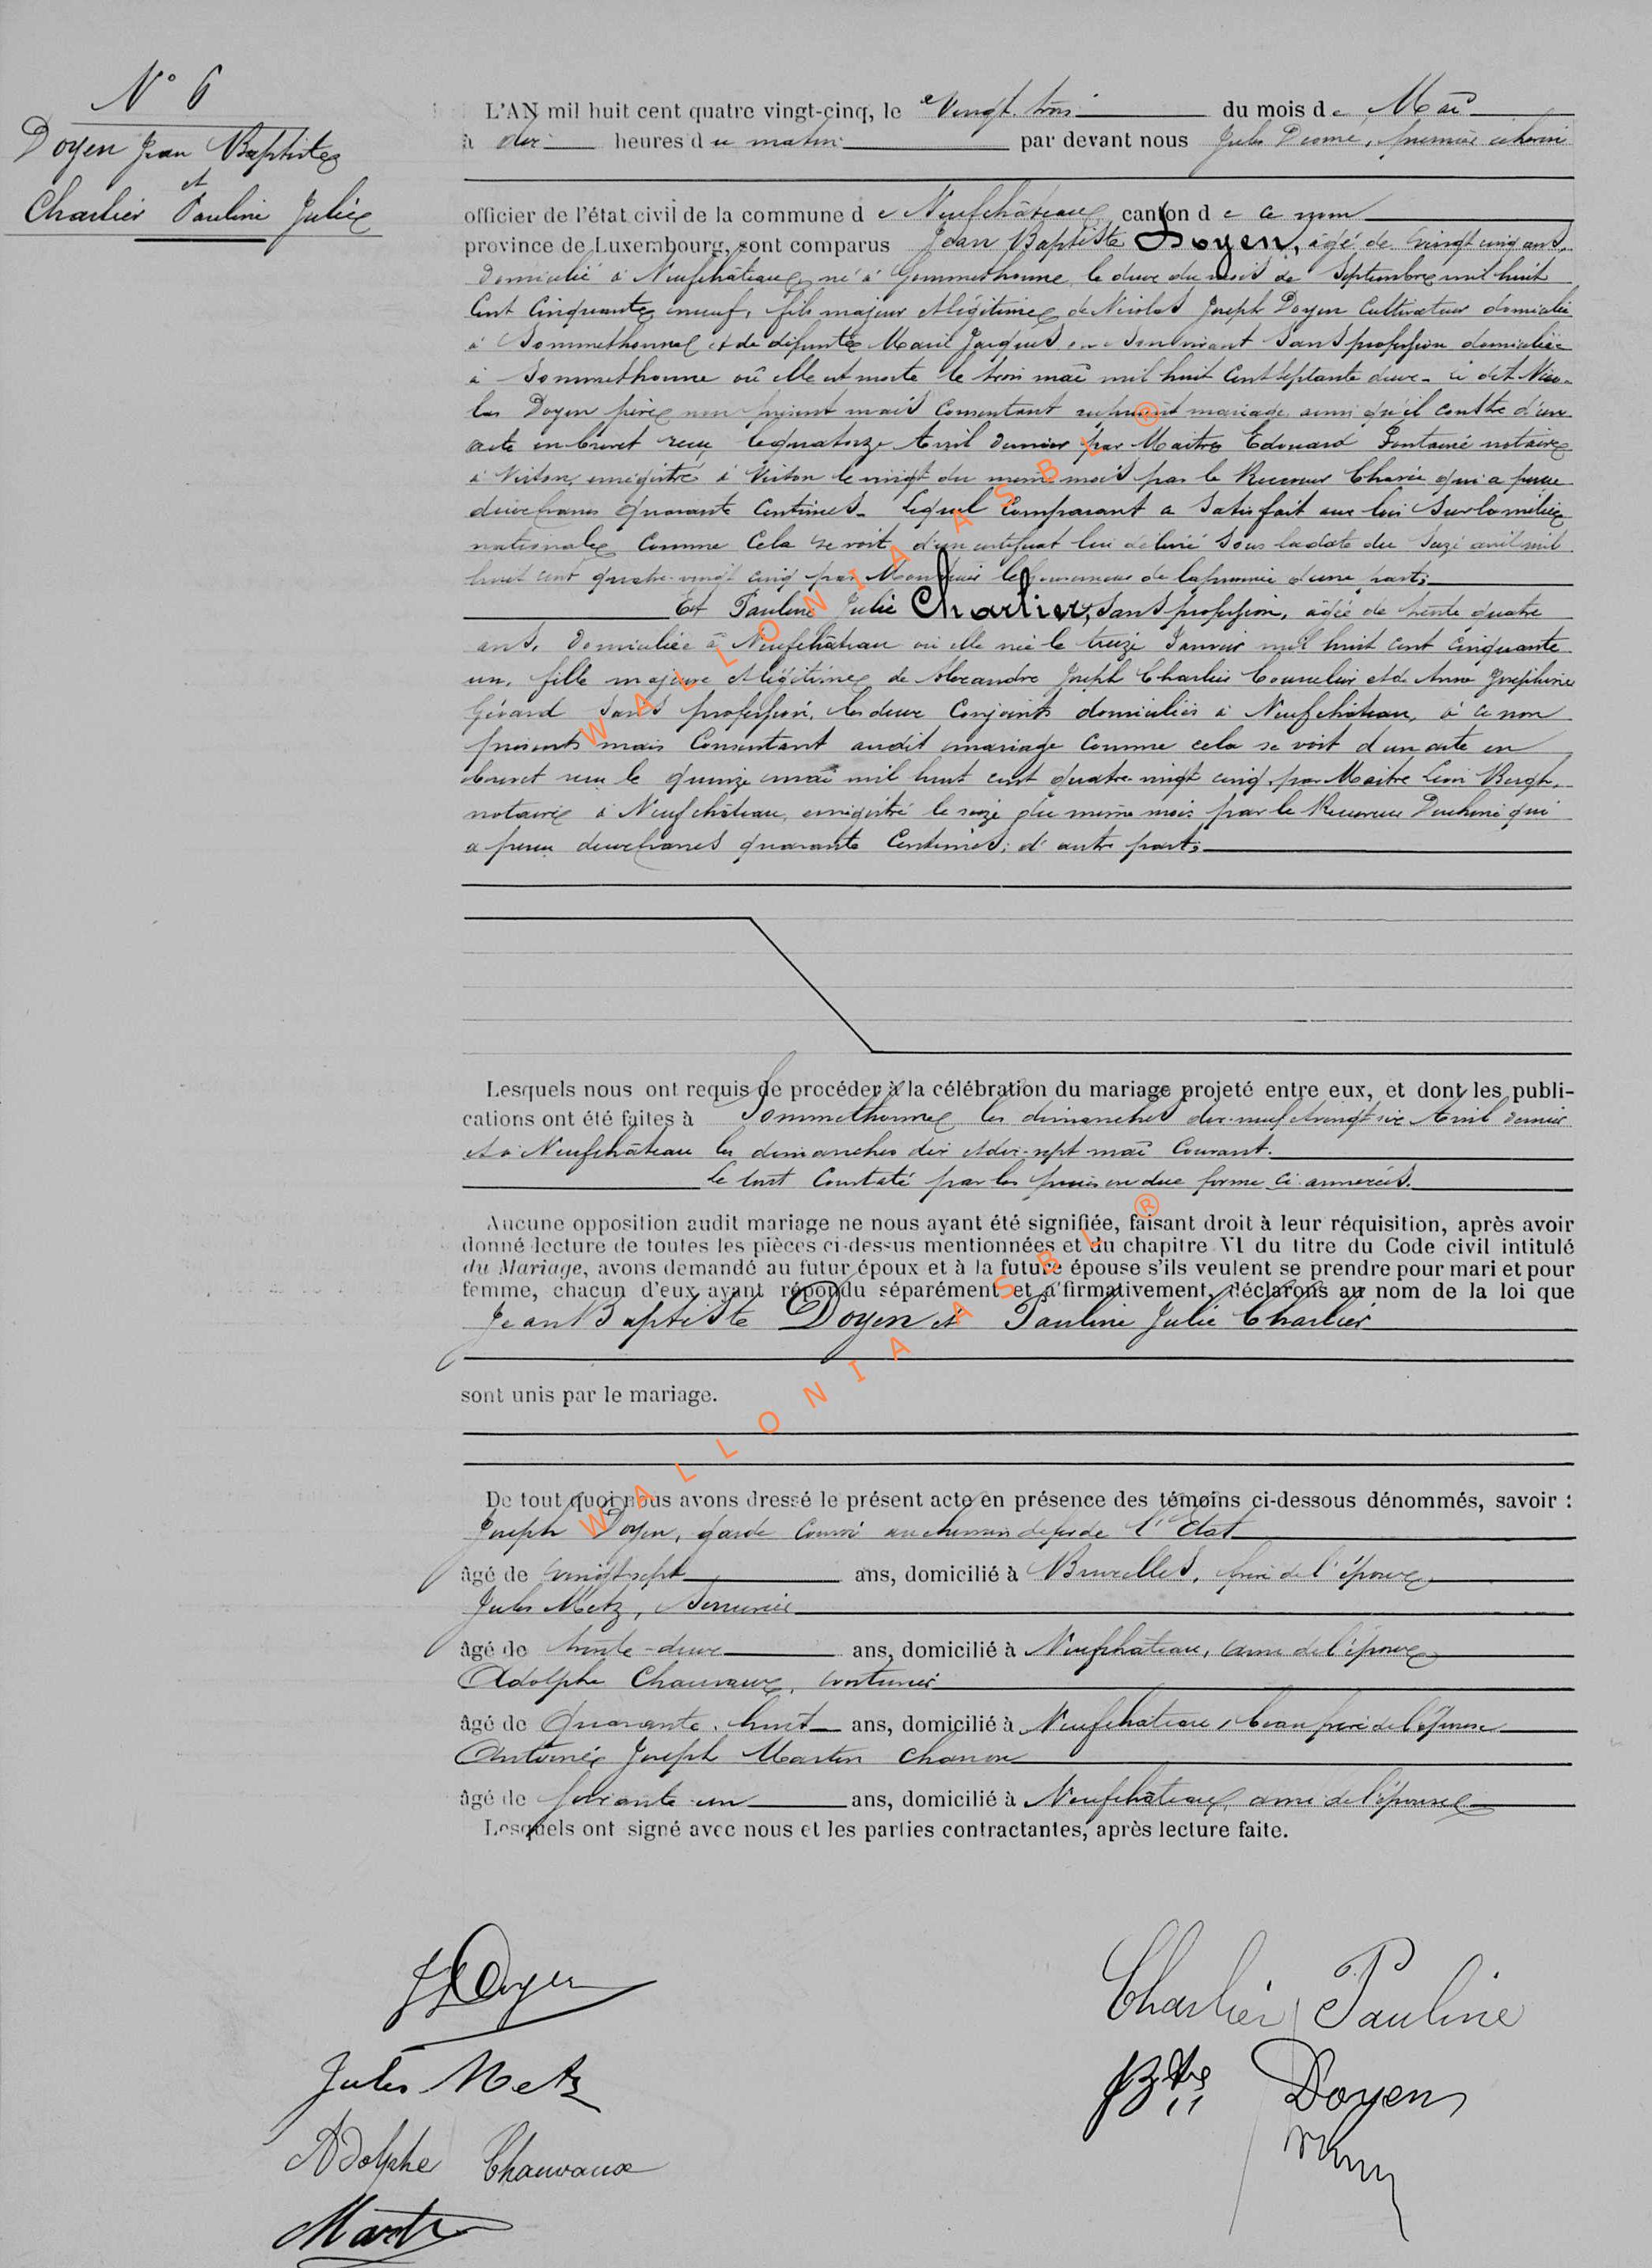 N° 6
Doyen Jean Baptiste
et
Charlier Pauline Julie
L'AN mil huit cent quatre vingt-cinq, le Vingt trois du mois de Mai
à dix heures du matin par devant nous Jules premier échevin
officier de l'état civil de la commune de Neufchâteau canton de ce nom
province de Luxembourg, sont comparus Jean Baptiste Doyen, âgé de vingt cinq ans,
domicilié à Neufchâteau, né à Sommethonne le deux du mois de Septembre mil huit
Cent Cinquante neuf, fils majeur et légitime de Nicolas Joseph Doyen Cultivateur domicilié
à Sommethonne et de défunte Marie Jacques en son vivant sans profession domiciliée
à Sommethonne où elle est morte le trois mai mil huit Cent septante deux - ce dit Nico-
las Doyen père non présent mais Consentant audit mariage ainsi qu'il conste d'un
acte en brevet reçu le quatorze Avril dernier par Maître Edouard Fontaine notaire
à Virton, enregistré à Virton le vingt du même mois par le Receveur qui a perçu
deux francs quarante Centimes - lequel Comparant a satisfait aux lois sur la milice
nationale Comme Cela se voit d'un certificat lui délivré sous la date du seize avril mil
huit cent quatre-vingt cinq par Monsieur le Gouverneur de la province d'une part;
Et Pauline Julie Charlier, sans profession, âgée de trente quatre
ans, domiciliée à Neufchâteau où elle née le treize Janvier mil huit cent cinquante
un, fille majeure et légitime de Alexandre Joseph Charlier Courrelier et de Anne Joséphine
Gérard sans profession, les deux Conjoints domiciliés à Neufchâteau, à ce non
présents mais Consentant audit mariage Comme cela se voit d'un acte en
brevet reçu le quinze mai mil huit cent quatre-vingt cinq par Maître Léon Bergh,
notaire à Neufchâteau, enregistré le seize du même mois par le Receveur Duchêne qui
a perçu deux francs quarante Centimes; d'autre part;
Lesquels nous ont requis de procéder à la célébration du mariage projeté entre eux, et dont les publi-
cations ont été faites à Sommethonne les dimanches dix-neuf et vingt six Avril dernier
et à Neufchâteau les dimanches dix et dix-sept mai Courant.
Le tout Constaté par les pièces en due forme ci-annexées.
Aucune opposition audit mariage ne nous ayant été signifiée, faisant droit à leur réquisition, après avoir
donné lecture de toutes les pièces ci-dessus mentionnées et du chapitre VI du titre du Code civil intitulé
du Mariage, avons demandé au futur époux et à la future épouse s'ils veulent se prendre pour mari et pour
femme, chacun d'eux ayant répondu séparément et affirmativement, déclarons au nom de la loi que
Jean Baptiste Doyen et Pauline Julie Charlier
sont unis par le mariage.
De tout quoi nous avons dressé le présent acte en présence des témoins ci-dessous dénommés, savoir :
Joseph Doyen, garde Convoi au chemin de fer de l'Etat
âgé de vingt sept ans, domicilié à Bruxelles, frère de l'époux
Jules Metz, Serrurier
âgé de trente-deux ans, domicilié à Neufchâteau, ami de l'époux
Adolphe Chauvaux,
âgé de Quarante-huit ans, domicilié à Neufchâteau, beau frère de l'épouse
Antoine Joseph Martin
âgé de soixante-un ans, domicilié à Neufchâteau, ami de l'épouse
Lesquels ont signé avec nous et les parties contractantes, après lecture faite.
Doyen
Charlier Pauline
Jules Metz
JBte Doyen
Adolphe Chauvaux
Martin
WALLONIA ASBL ®
WALLONIA ASBL ®